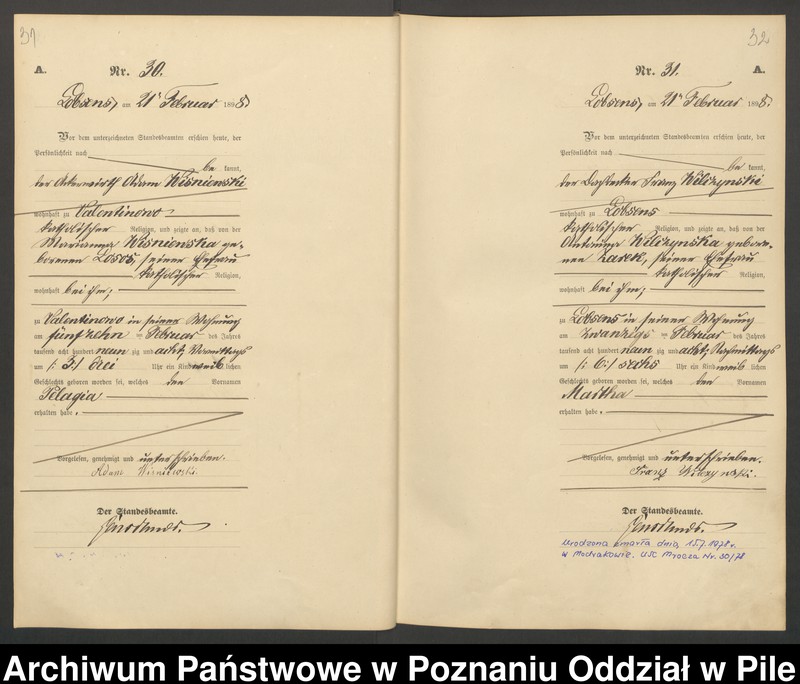 31
A.
Nr. 30.
Lobsens, am 21n Februar 1898.
Vor dem unterzeichneten Standesbeamten erschien heute, der
Persönlichkeit nach
be kannt,
der Ackerwirth Adam Wisniewski
wohnhaft zu Valentinowo
katholischer Religion, und zeigte an, daß von der
Maryanna Wisniewska ge-
borenen Losos, seiner Ehefrau
katholischer Religion,
wohnhaft bei ihm;
zu Valentinowo in seiner Wohnung
am fünfzehn ten Februar des Jahres
tausend acht hundert neun zig und acht, Vormittags
um /: 3 :/ drei Uhr ein Kind weib lichen
Geschlechts geboren worden sei, welches den Vornamen
Pelagia
erhalten habe.
Vorgelesen, genehmigt und unterschrieben.
Adam Wisniewski.
Der Standesbeamte.
32
Nr. 31.
A.
Lobsens, am 21n Februar 1898.
Vor dem unterzeichneten Standesbeamten erschien heute, der
Persönlichkeit nach
be kannt,
der Dachdecker Franz Wilczynski
wohnhaft zu Lobsens
katholischer Religion, und zeigte an, daß von der
Antonna Wilczynska gebore-
nen Zarek, seiner Ehefrau
katholischer Religion,
wohnhaft bei ihm;
zu Lobsens in seiner Wohnung
am zwanzigs ten Februar des Jahres
tausend acht hundert neun zig und acht, Nachmittags
um /: 6 :/ sechs Uhr ein Kind weib lichen
Geschlechts geboren worden sei, welches den Vornamen
Martha
erhalten habe.
Vorgelesen, genehmigt und unterschrieben.
Franz Wilczynski.
Der Standesbeamte.
Urodzona zmarła dnia 15.7.1978 r.
w Modrakowie. USC Mrocza Nr. 30/78
Archiwum Państwowe w Poznaniu Oddział w Pile